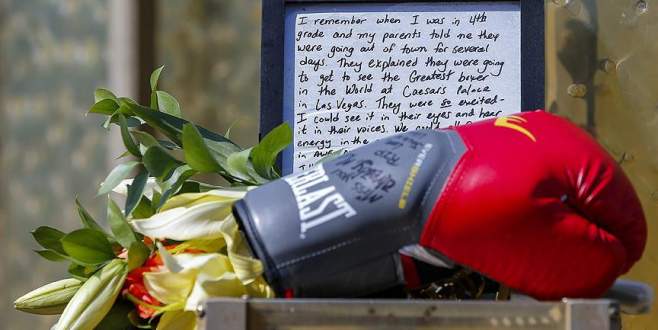 I remember when I was in 4th
grade and my parents told me they
were going out of town for several
days. They explained they were going
to get to see the Greatest boxer
in the World at Caesars Palace
in Las Vegas. They were so excited-
I could see it in their eyes and hear
it in their voices. We
energy in the
in
EVERLAST
EVERSHIELD
Miss You
Already